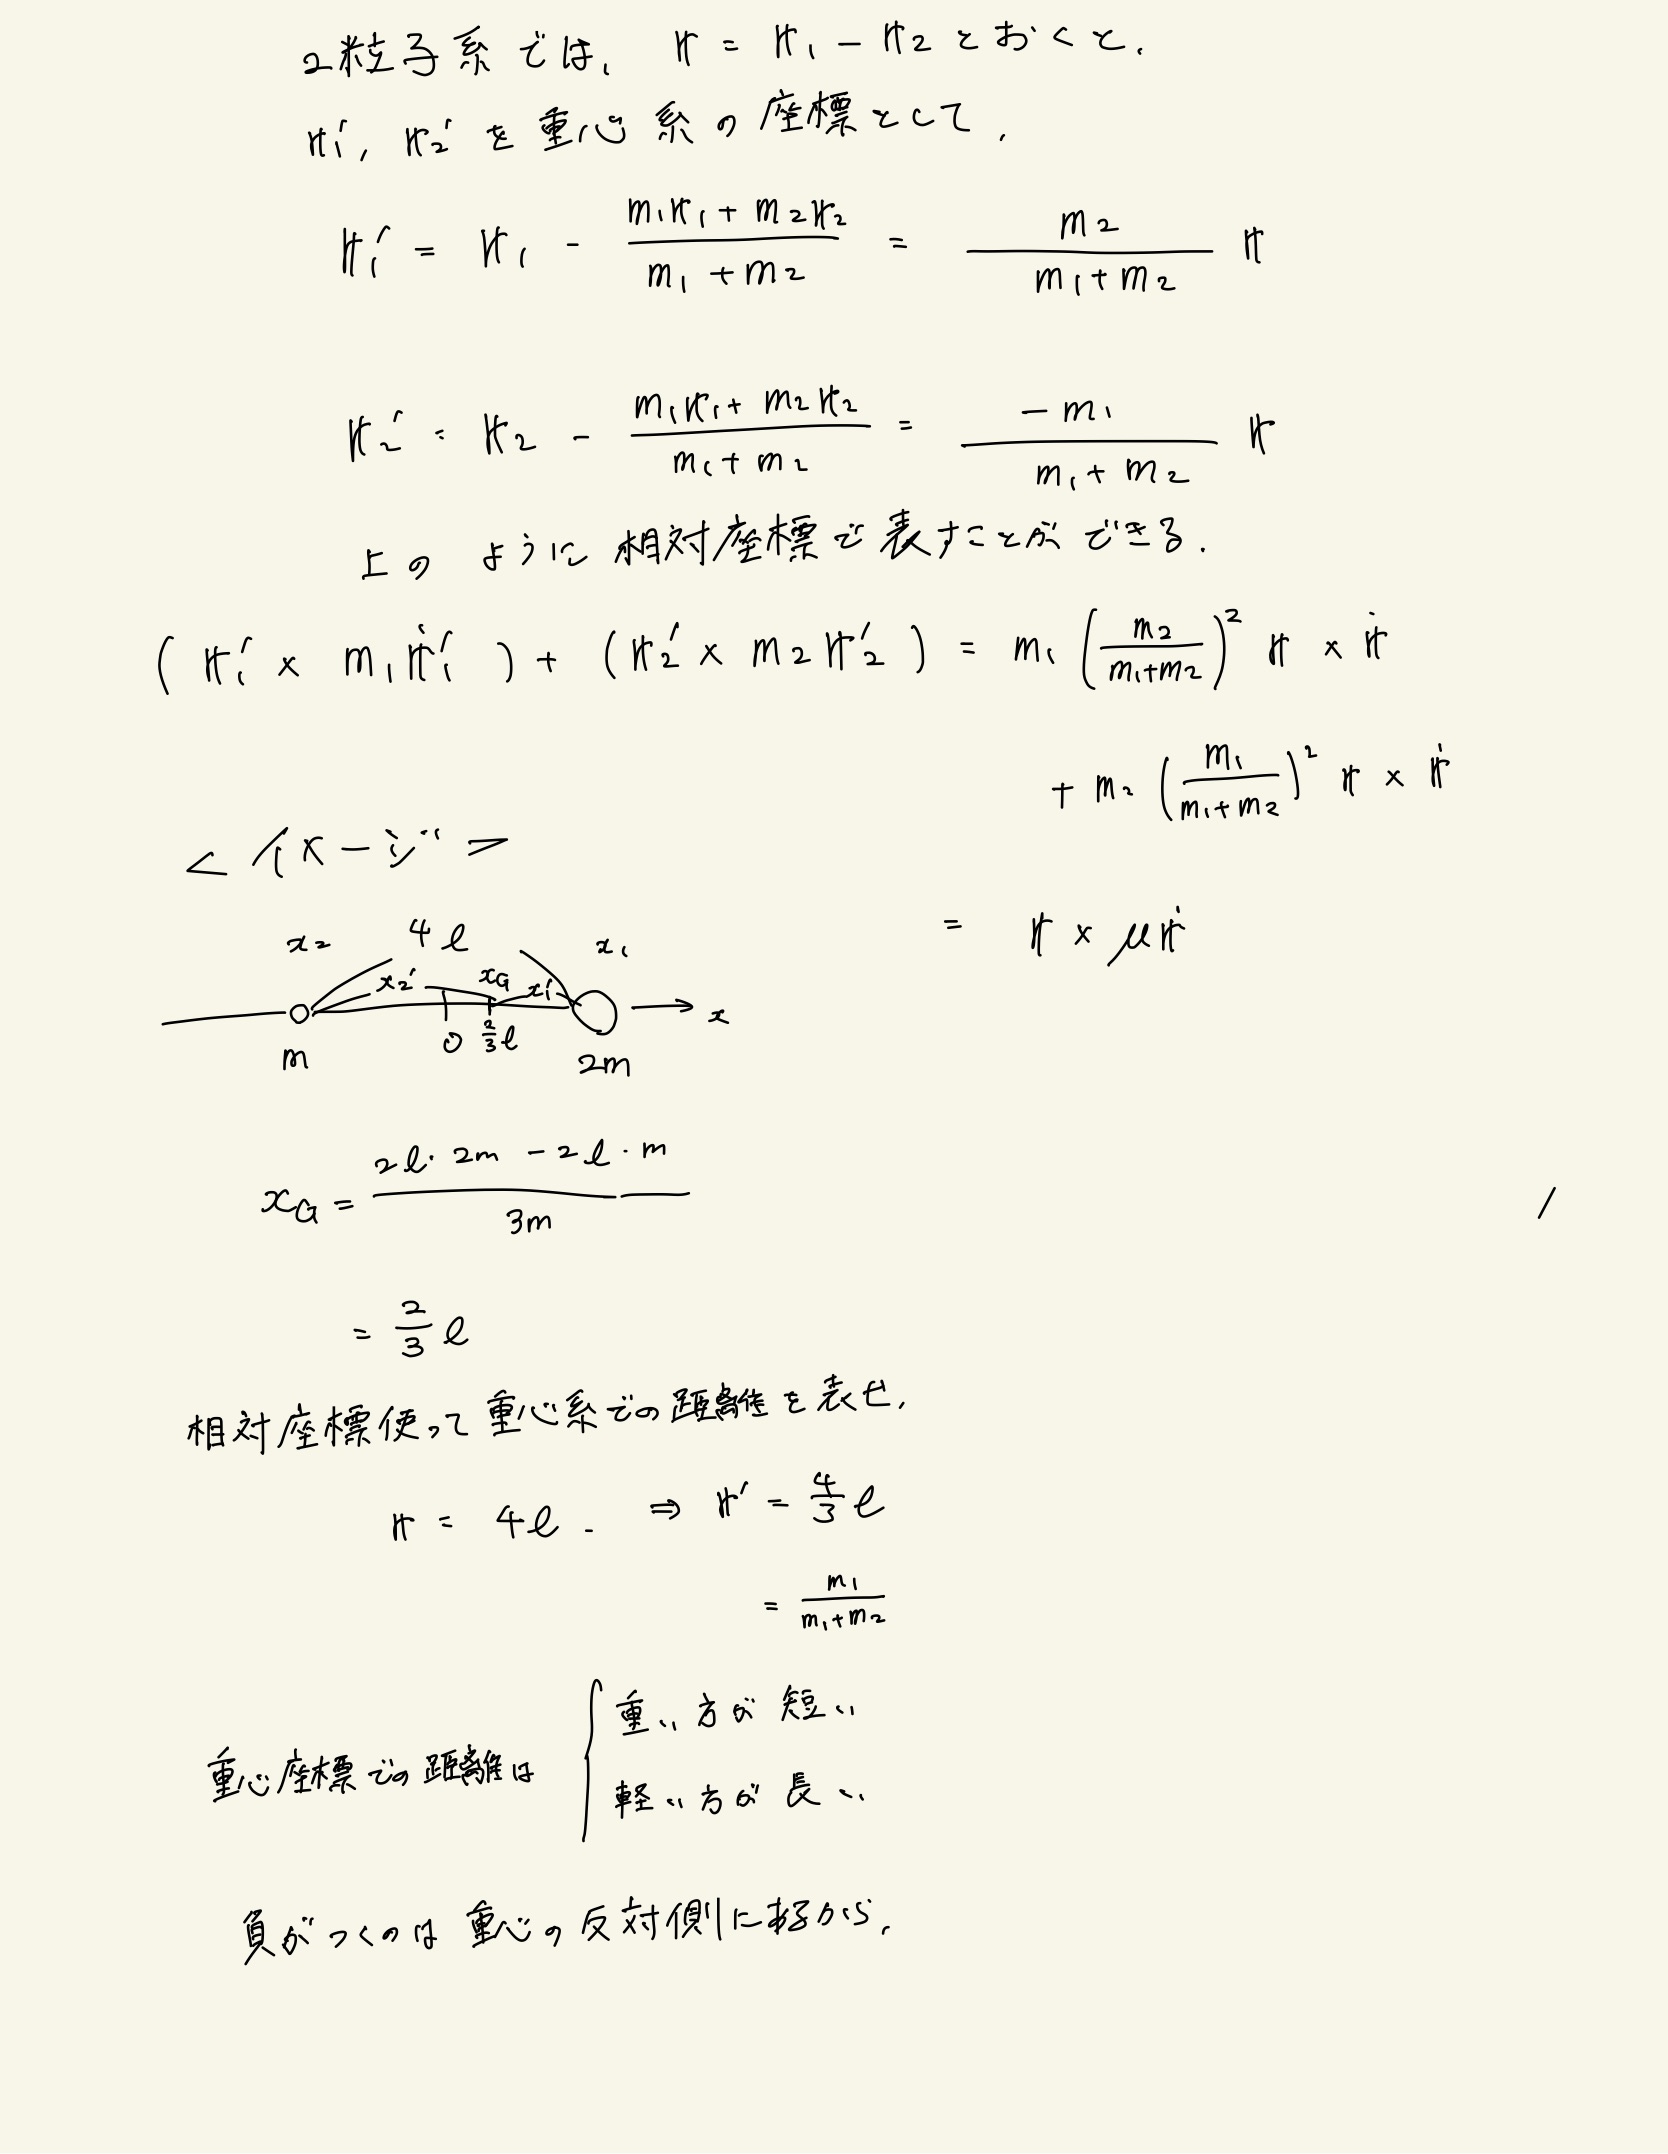 2粒子系では、 r = r₁ − r₂ とおくと、
r₁′, r₂′ を重心系の座標として、
r₁′ = r₁ − (m₁r₁ + m₂r₂)/(m₁ + m₂) = m₂/(m₁ + m₂) r
r₂′ = r₂ − (m₁r₁ + m₂r₂)/(m₁ + m₂) = −m₁/(m₁ + m₂) r
上のように相対座標で表すことができる.
(r₁′ × m₁ṙ₁′) + (r₂′ × m₂r₂′) = m₁(m₂/(m₁+m₂))² r × ṙ
+ m₂(m₁/(m₁+m₂))² r × ṙ
= r × μṙ
<イメージ>
x₂ 4ℓ x₁
x₂′ x_G x₁′
x
0 2/3 ℓ
m 2m
x_G = (2ℓ・2m − 2ℓ・m)/3m
= 2/3 ℓ
相対座標使って重心系での距離を表せ、
r = 4ℓ. ⇒ r′ = 4/3 ℓ
= m₁/(m₁+m₂)
重心座標での距離は { 重い方が短い
軽い方が長い
負がつくのは重心の反対側にあるから、